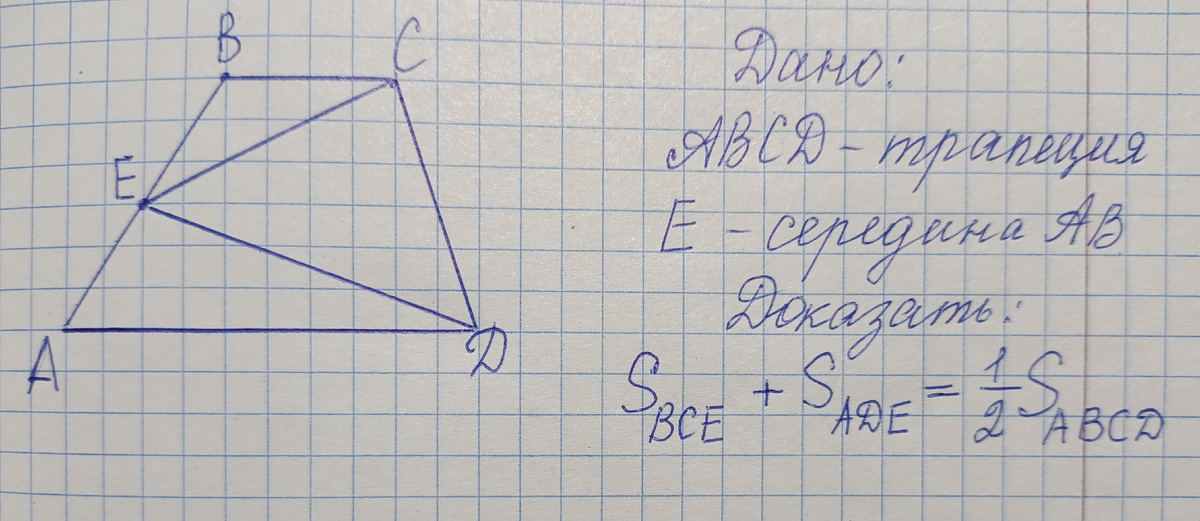 B C
E
A D
Дано:
ABCD - трапеция
E - середина AB
Доказать:
S_BCE + S_ADE = 1/2 S_ABCD